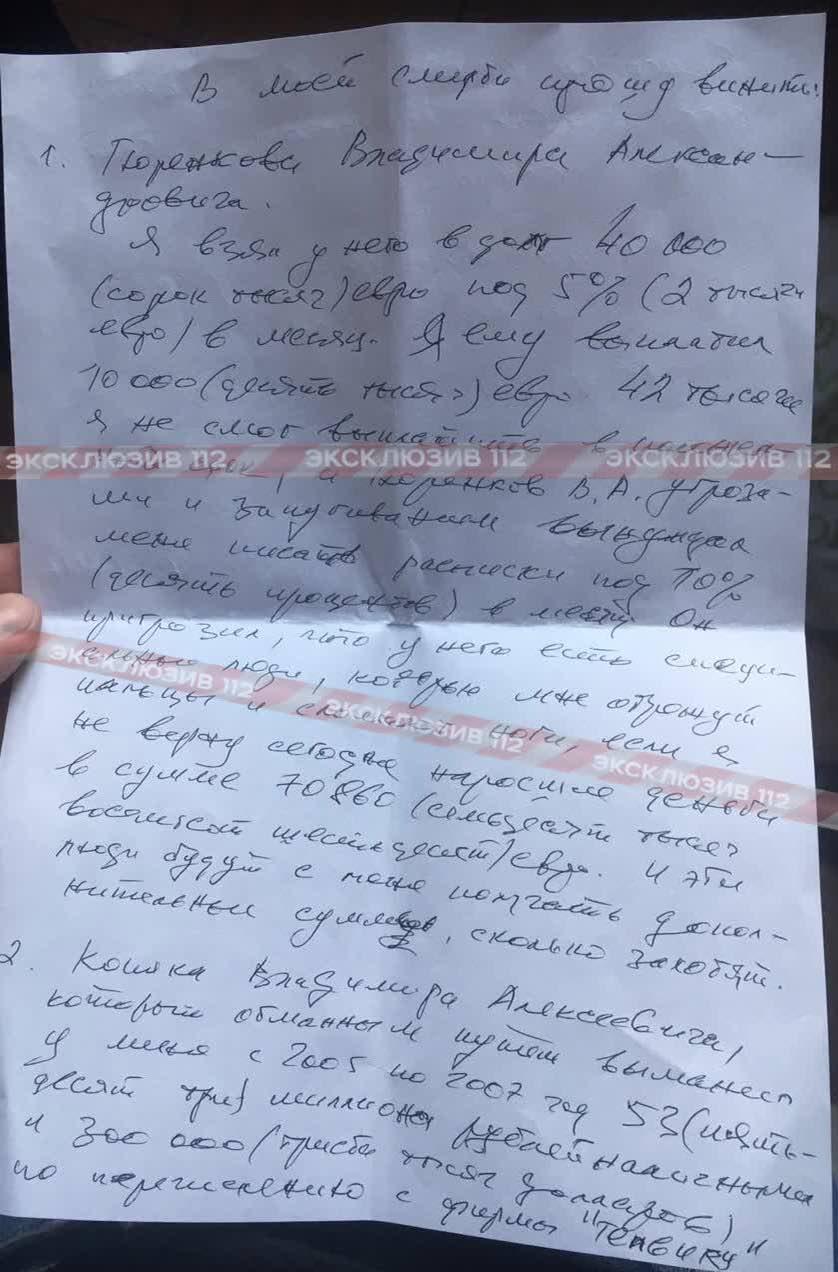 В моей смерти прошу винить:
1. Тюренкова Владимира Алексан-
дровича.
Я взял у него в долг 40 000
(сорок тысяч) евро под 5% (2 тысячи
евро) в месяц. Я ему выплатил
10 000 (десять тысяч) евро 42 тысячи
я не смог выплатить в
ЭКСКЛЮЗИВ 112 ЭКСКЛЮЗИВ 112 ЭКСКЛЮЗИВ 112
и Тюренков В.А. угроза-
ми и запугиванием вынуждал
меня писать расписки под 10%
(десять процентов) в месяц Он
пригрозил, что у него есть специ-
альные люди, которые мне отрежут
ЭКСКЛЮЗИВ 112 ЭКСКЛЮЗИВ 112 ЭКСКЛЮЗИВ 112
пальцы и сломают ноги, если я
не верну сегодня наросшие деньги
в сумме 70 860 (семьдесят тысяч
восемьсот шестьдесят) евро. И эти
люди будут с меня получать допол-
нительные суммы, сколько захотят.
2. Владимира Алексеевича,
который обманным путём выманил
у меня с 2005 по 2007 год 53 (пять-
десят три) миллиона рублей наличными
и 300 000 (триста тысяч долларов)
по перечислению с фирмы